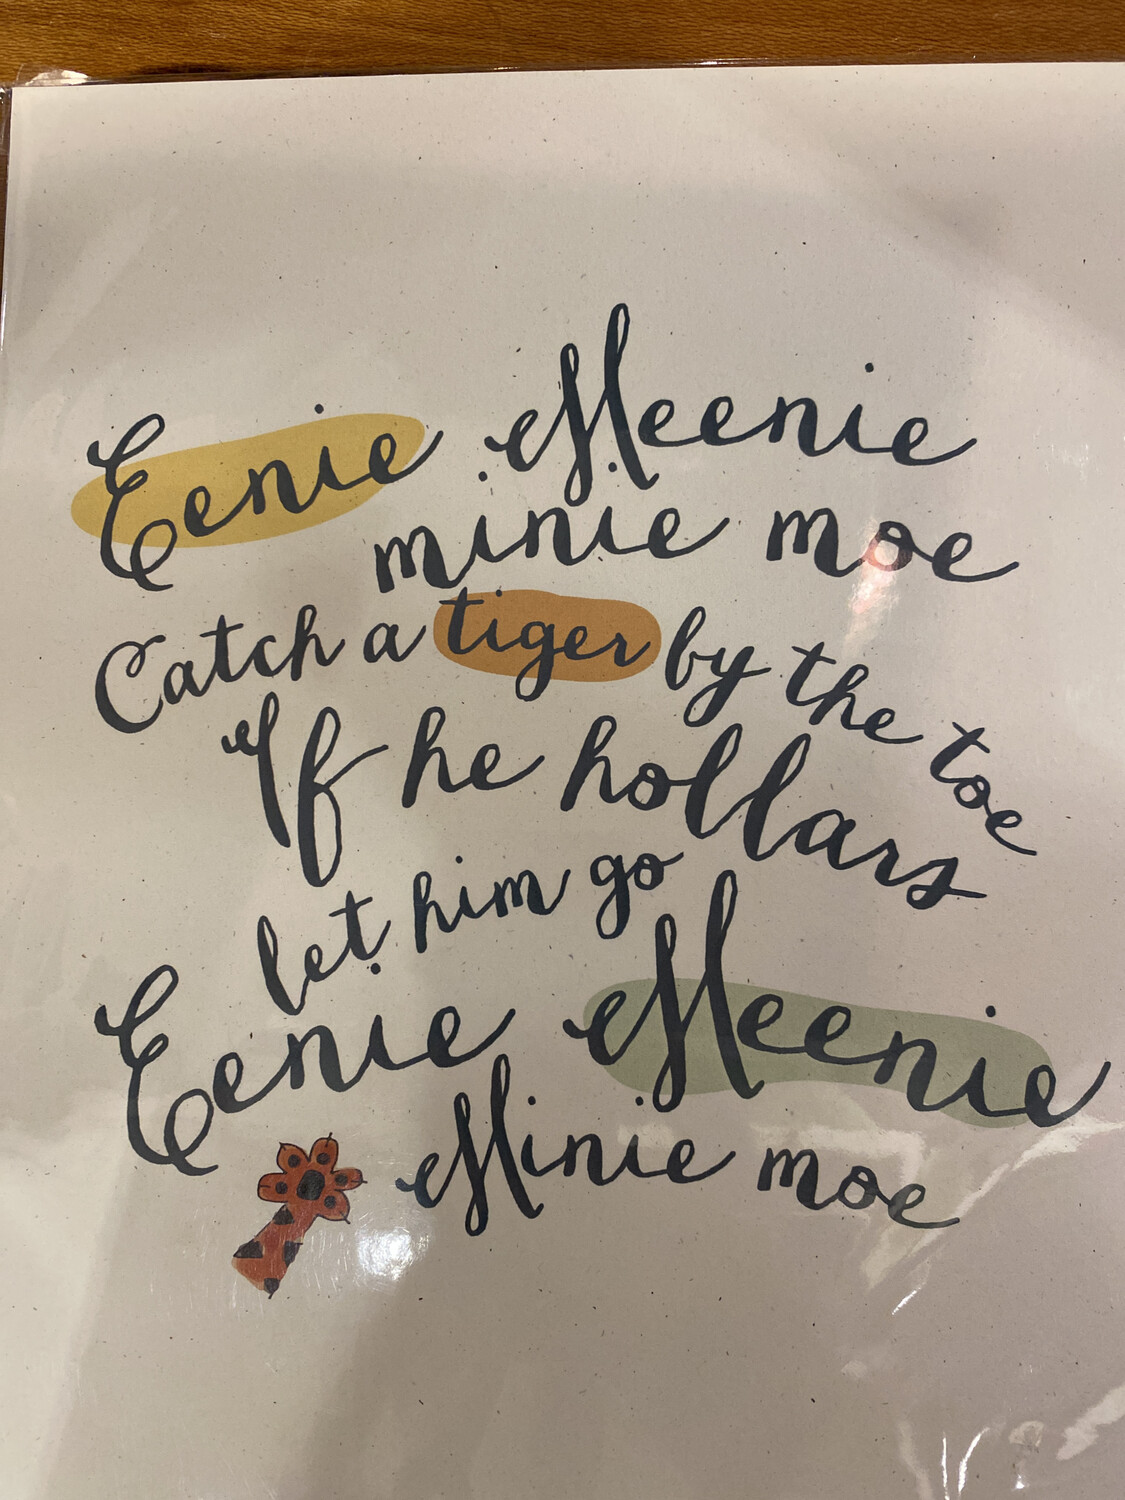 Eenie Meenie
minie moe
Catch a tiger by the toe
If he hollars
let him go
Eenie Meenie
Minie moe